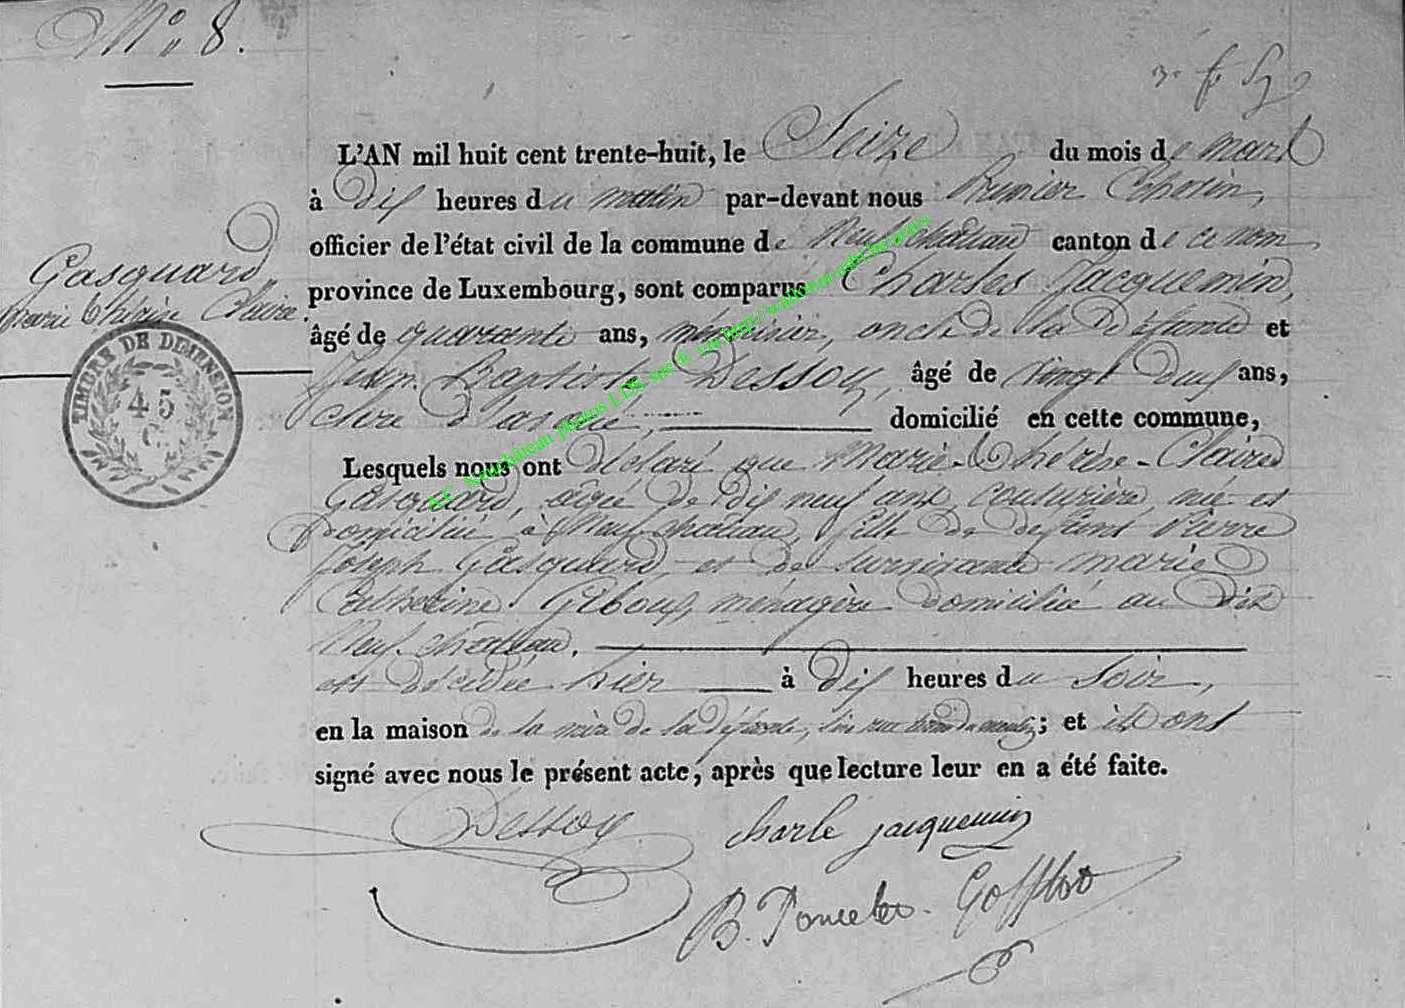 N° 8.
L'AN mil huit cent trente-huit, le Seize du mois de mars
à dix heures du matin par-devant nous
officier de l'état civil de la commune de Neufchâteau canton de ce nom
province de Luxembourg, sont comparus Charles Jacquemin,
âgé de quarante ans, menuisier, oncle de la défunte et
Jean Baptiste Dessoy, âgé de vingt neuf ans,
domicilié en cette commune,
Lesquels nous ont déclaré que Marie-Thérèse-Claire
Gasquard, âgée de dix neuf ans, couturière, née et
domiciliée à Neufchâteau, fille de défunt Pierre
Joseph Gasquard, et de survivante marie
Catherine Giboux, ménagère domiciliée au dit
Neufchâteau.
est décédée hier à dix heures du soir,
en la maison de la mère de la défunte, ; et ils ont
signé avec nous le présent acte, après que lecture leur en a été faite.
Gasquard
marie thérèse Claire.
TIMBRE DE DIMENSION
45
C.
Dessoy
charle jacquemin
B. Poncelet
A.C. Neufchâteau photos LDS site © via http://wallonia-asbl.be/actes